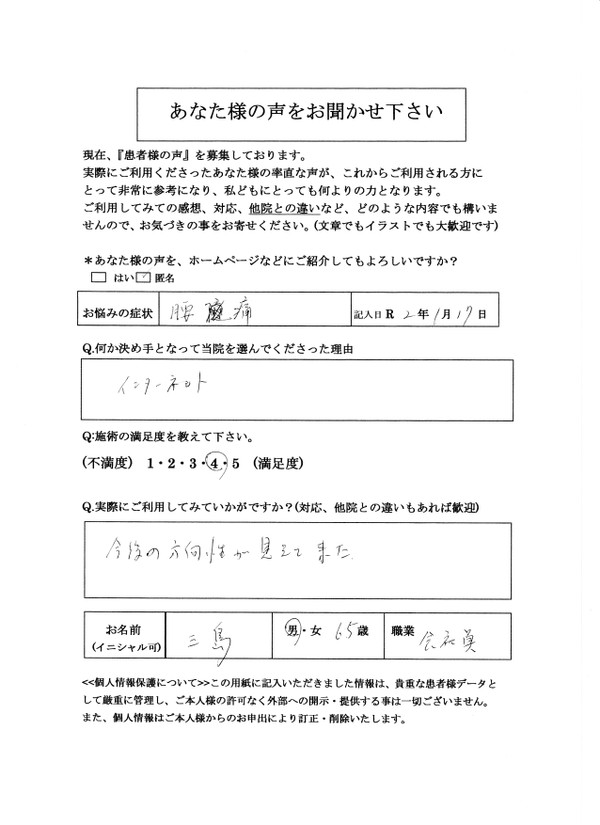 あなた様の声をお聞かせ下さい
現在、『患者様の声』を募集しております。
実際にご利用くださったあなた様の率直な声が、これからご利用される方に
とって非常に参考になり、私どもにとっても何よりの力となります。
ご利用してみての感想、対応、他院との違いなど、どのような内容でも構いま
せんので、お気づきの事をお寄せください。(文章でもイラストでも大歓迎です)
＊あなた様の声を、ホームページなどにご紹介してもよろしいですか？
□ はい ☑ 匿名
お悩みの症状 腰 痛 記入日 R 2 年 1 月 17 日
Q.何か決め手となって当院を選んでくださった理由
インターネット
Q:施術の満足度を教えて下さい。
(不満度) 1・2・3・4・5 (満足度)
Q.実際にご利用してみていかがですか？(対応、他院との違いもあれば歓迎)
今後の方向性が見えて来た
お名前 三島 男・女 65歳 職業 会社員
(イニシャル可)
<<個人情報保護について>>この用紙に記入いただきました情報は、貴重な患者様データと
して厳重に管理し、ご本人様の許可なく外部への開示・提供する事は一切ございません。
また、個人情報はご本人様からのお申出により訂正・削除いたします。